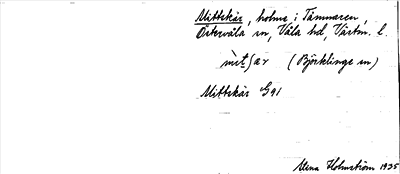 Mittskär, holme i Tämnaren,
Östervåla sn, Våla hd, Västm. l.
mit̬ʃar (Björklinge sn)
Mittskär G91
Stina Holmström 1935